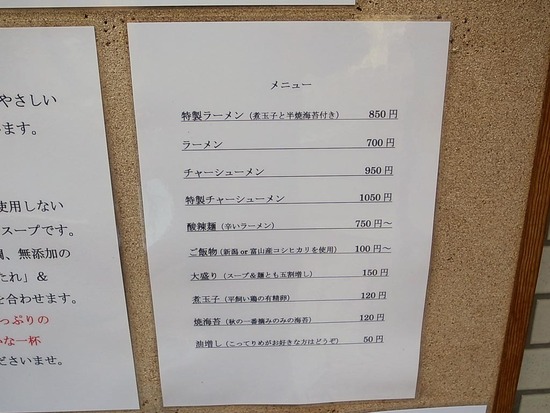 やさしい
ます。
使用しない
スープです。
無添加の
たれ」&
を合わせます。
っぷりの
な一杯
ださいませ。
メニュー
特製ラーメン（煮玉子と半焼海苔付き） 850円
ラーメン 700円
チャーシューメン 950円
特製チャーシューメン 1050円
酸辣麺（辛いラーメン） 750円～
ご飯物（新潟or富山産コシヒカリを使用） 100円～
大盛り（スープ&麺とも五割増し） 150円
煮玉子（平飼い鶏の有精卵） 120円
焼海苔（秋の一番摘みのみの海苔） 120円
油増し（こってりめがお好きな方はどうぞ） 50円